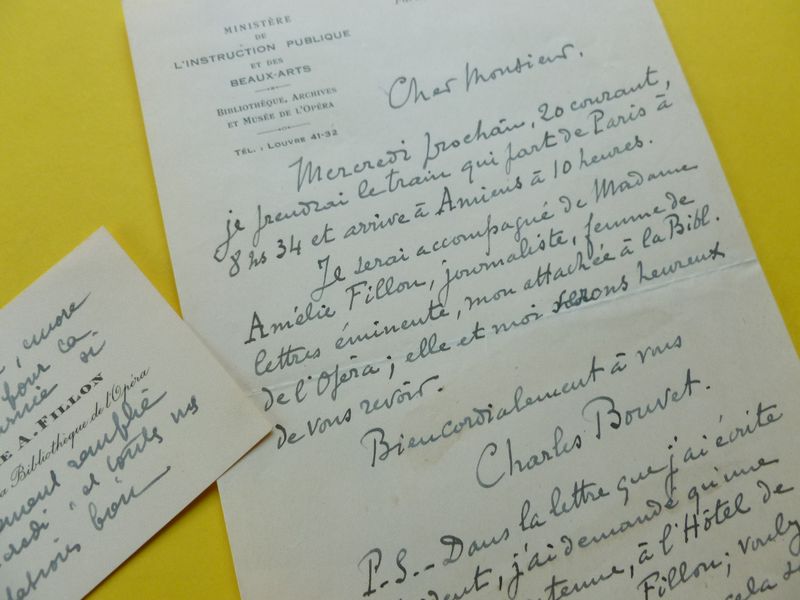 MINISTÈRE
DE
L'INSTRUCTION PUBLIQUE
ET DES
BEAUX-ARTS
BIBLIOTHÈQUE, ARCHIVES
ET MUSÉE DE L'OPÉRA
TÉL. : LOUVRE 41-32
Cher Monsieur.
Mercredi prochain, 20 courant,
je prendrai le train qui part de Paris à
8 hs 34 et arrive à Amiens à 10 heures.
Je serai accompagné de Madame
Amélie Fillon, journaliste, femme de
lettres éminente, mon attachée à la Bibl.
de l'Opéra ; elle et moi serons heureux
de vous revoir.
Bien cordialement à vous
Charles Bouvet.
P.S. - Dans la lettre que j'ai écrite
j'ai demandé qu'une
à l'Hôtel de
Fillon ; 
cela
encore
pour
si
E A. FILLON
a Bibliothèque de l'Opéra